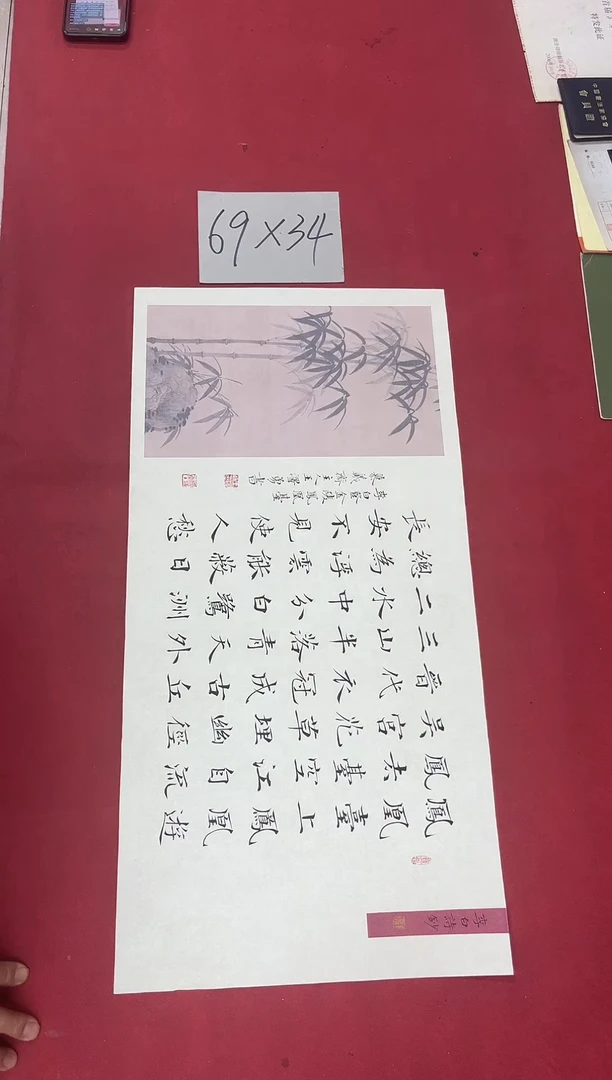 69×34
李白詩鈔
鳳凰臺上鳳凰遊
鳳去臺空江自流
吳宮花草埋幽徑
晉代衣冠成古丘
三山半落青天外
二水中分白鷺洲
總為浮雲能蔽日
長安不見使人愁
李白登金陵鳳凰臺
齋主人王勇書
會員證
特发此证